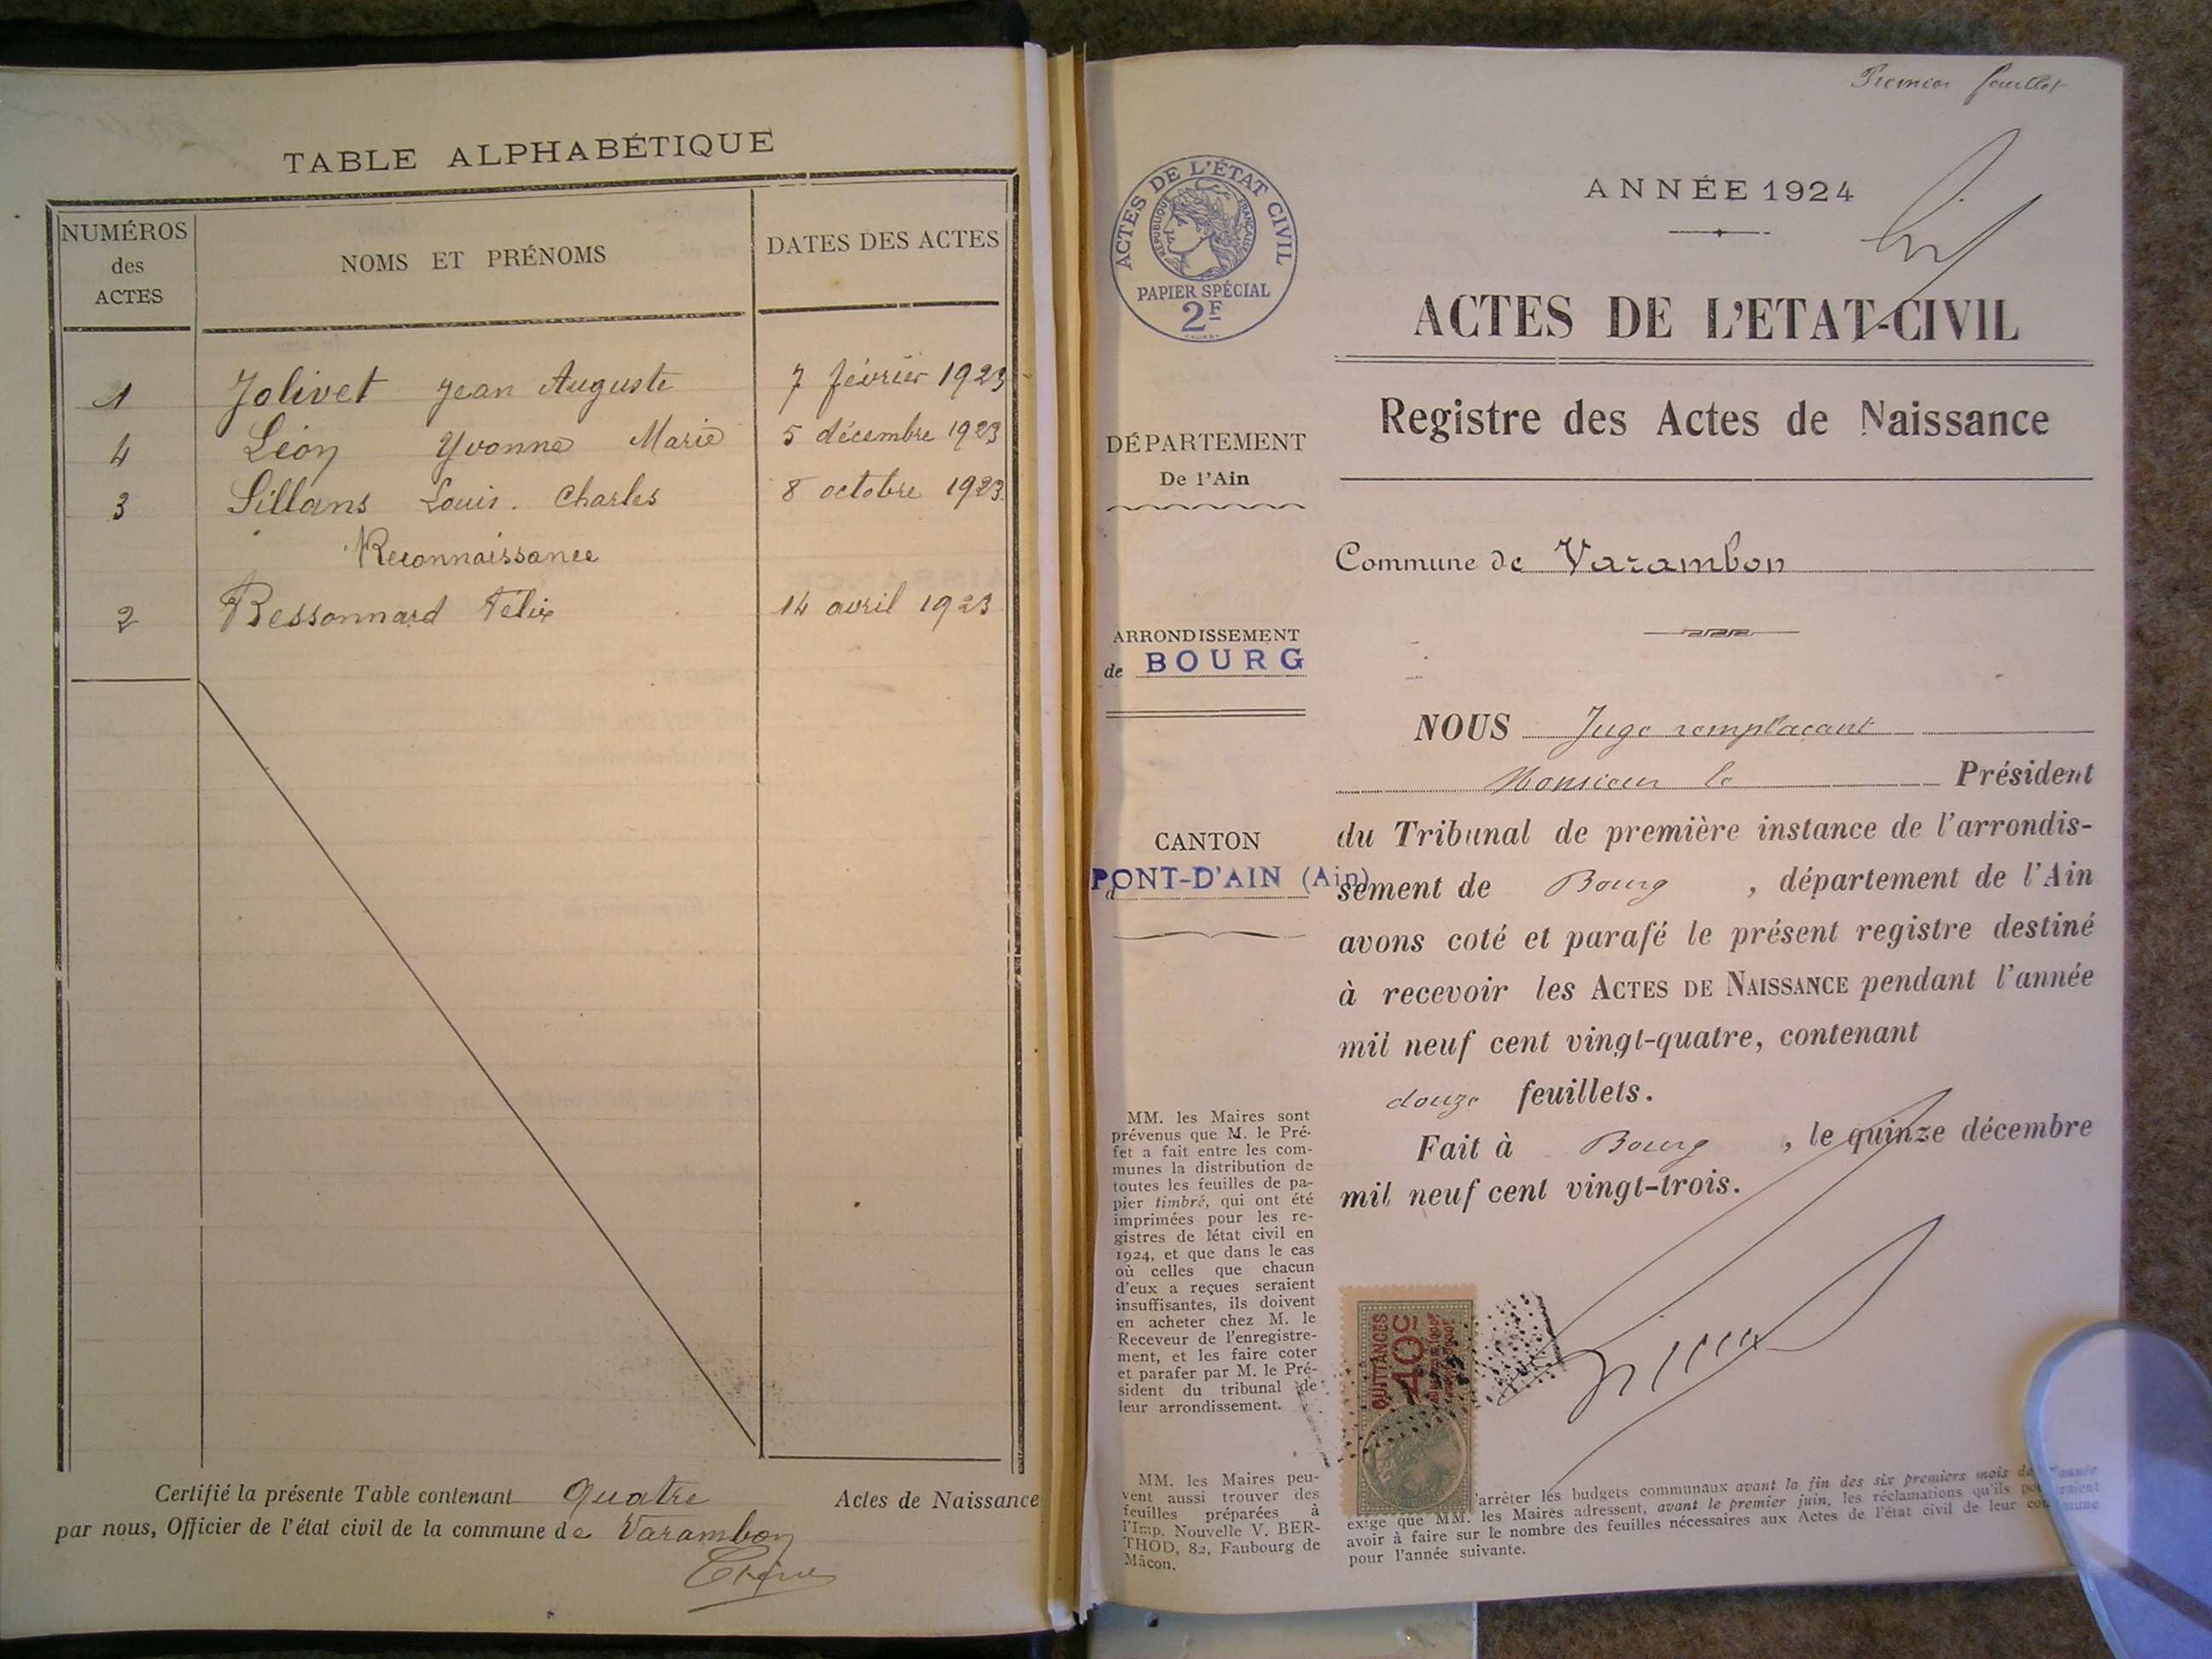 TABLE ALPHABÉTIQUE
NUMÉROS
des
ACTES
NOMS ET PRÉNOMS
DATES DES ACTES
1 Jolivet Jean Auguste 7 février 1923
4 Léon Yvonne Marie 5 décembre 1923
3 Sillans Louis. Charles 8 octobre 1923
Reconnaissance
2 Bessonnard Félix 14 avril 1923
Certifié la présente Table contenant quatre Actes de Naissance
par nous, Officier de l'état civil de la commune de Varambon
Premier feuillet
ACTES DE L'ÉTAT CIVIL
RÉPUBLIQUE FRANÇAISE
PAPIER SPÉCIAL
2F
DÉPARTEMENT
De l'Ain
ARRONDISSEMENT
de BOURG
CANTON
d PONT-D'AIN (Ain)
MM. les Maires sont
prévenus que M. le Pré-
fet a fait entre les com-
munes la distribution de
toutes les feuilles de pa-
pier timbré, qui ont été
imprimées pour les re-
gistres de l'état civil en
1924, et que dans le cas
où celles que chacun
d'eux a reçues seraient
insuffisantes, ils doivent
en acheter chez M. le
Receveur de l'enregistre-
ment, et les faire coter
et parafer par M. le Pré-
sident du tribunal de
leur arrondissement.
MM. les Maires peu-
vent aussi trouver des
feuilles préparées à
l'Imp. Nouvelle V. BER-
THOD, 82, Faubourg de
Mâcon.
ANNÉE 1924
ACTES DE L'ETAT-CIVIL
Registre des Actes de Naissance
Commune de Varambon
NOUS Juge remplaçant
Monsieur le Président
du Tribunal de première instance de l'arrondis-
sement de Bourg , département de l'Ain
avons coté et parafé le présent registre destiné
à recevoir les ACTES DE NAISSANCE pendant l'année
mil neuf cent vingt-quatre, contenant
douze feuillets.
Fait à Bourg , le quinze décembre
mil neuf cent vingt-trois.
QUITTANCES
10c
arrêter les budgets communaux avant la fin des six premiers mois de l'année
exige que MM. les Maires adressent, avant le premier juin, les réclamations qu'ils pourraient
avoir à faire sur le nombre des feuilles nécessaires aux Actes de l'état civil de leur commune
pour l'année suivante.